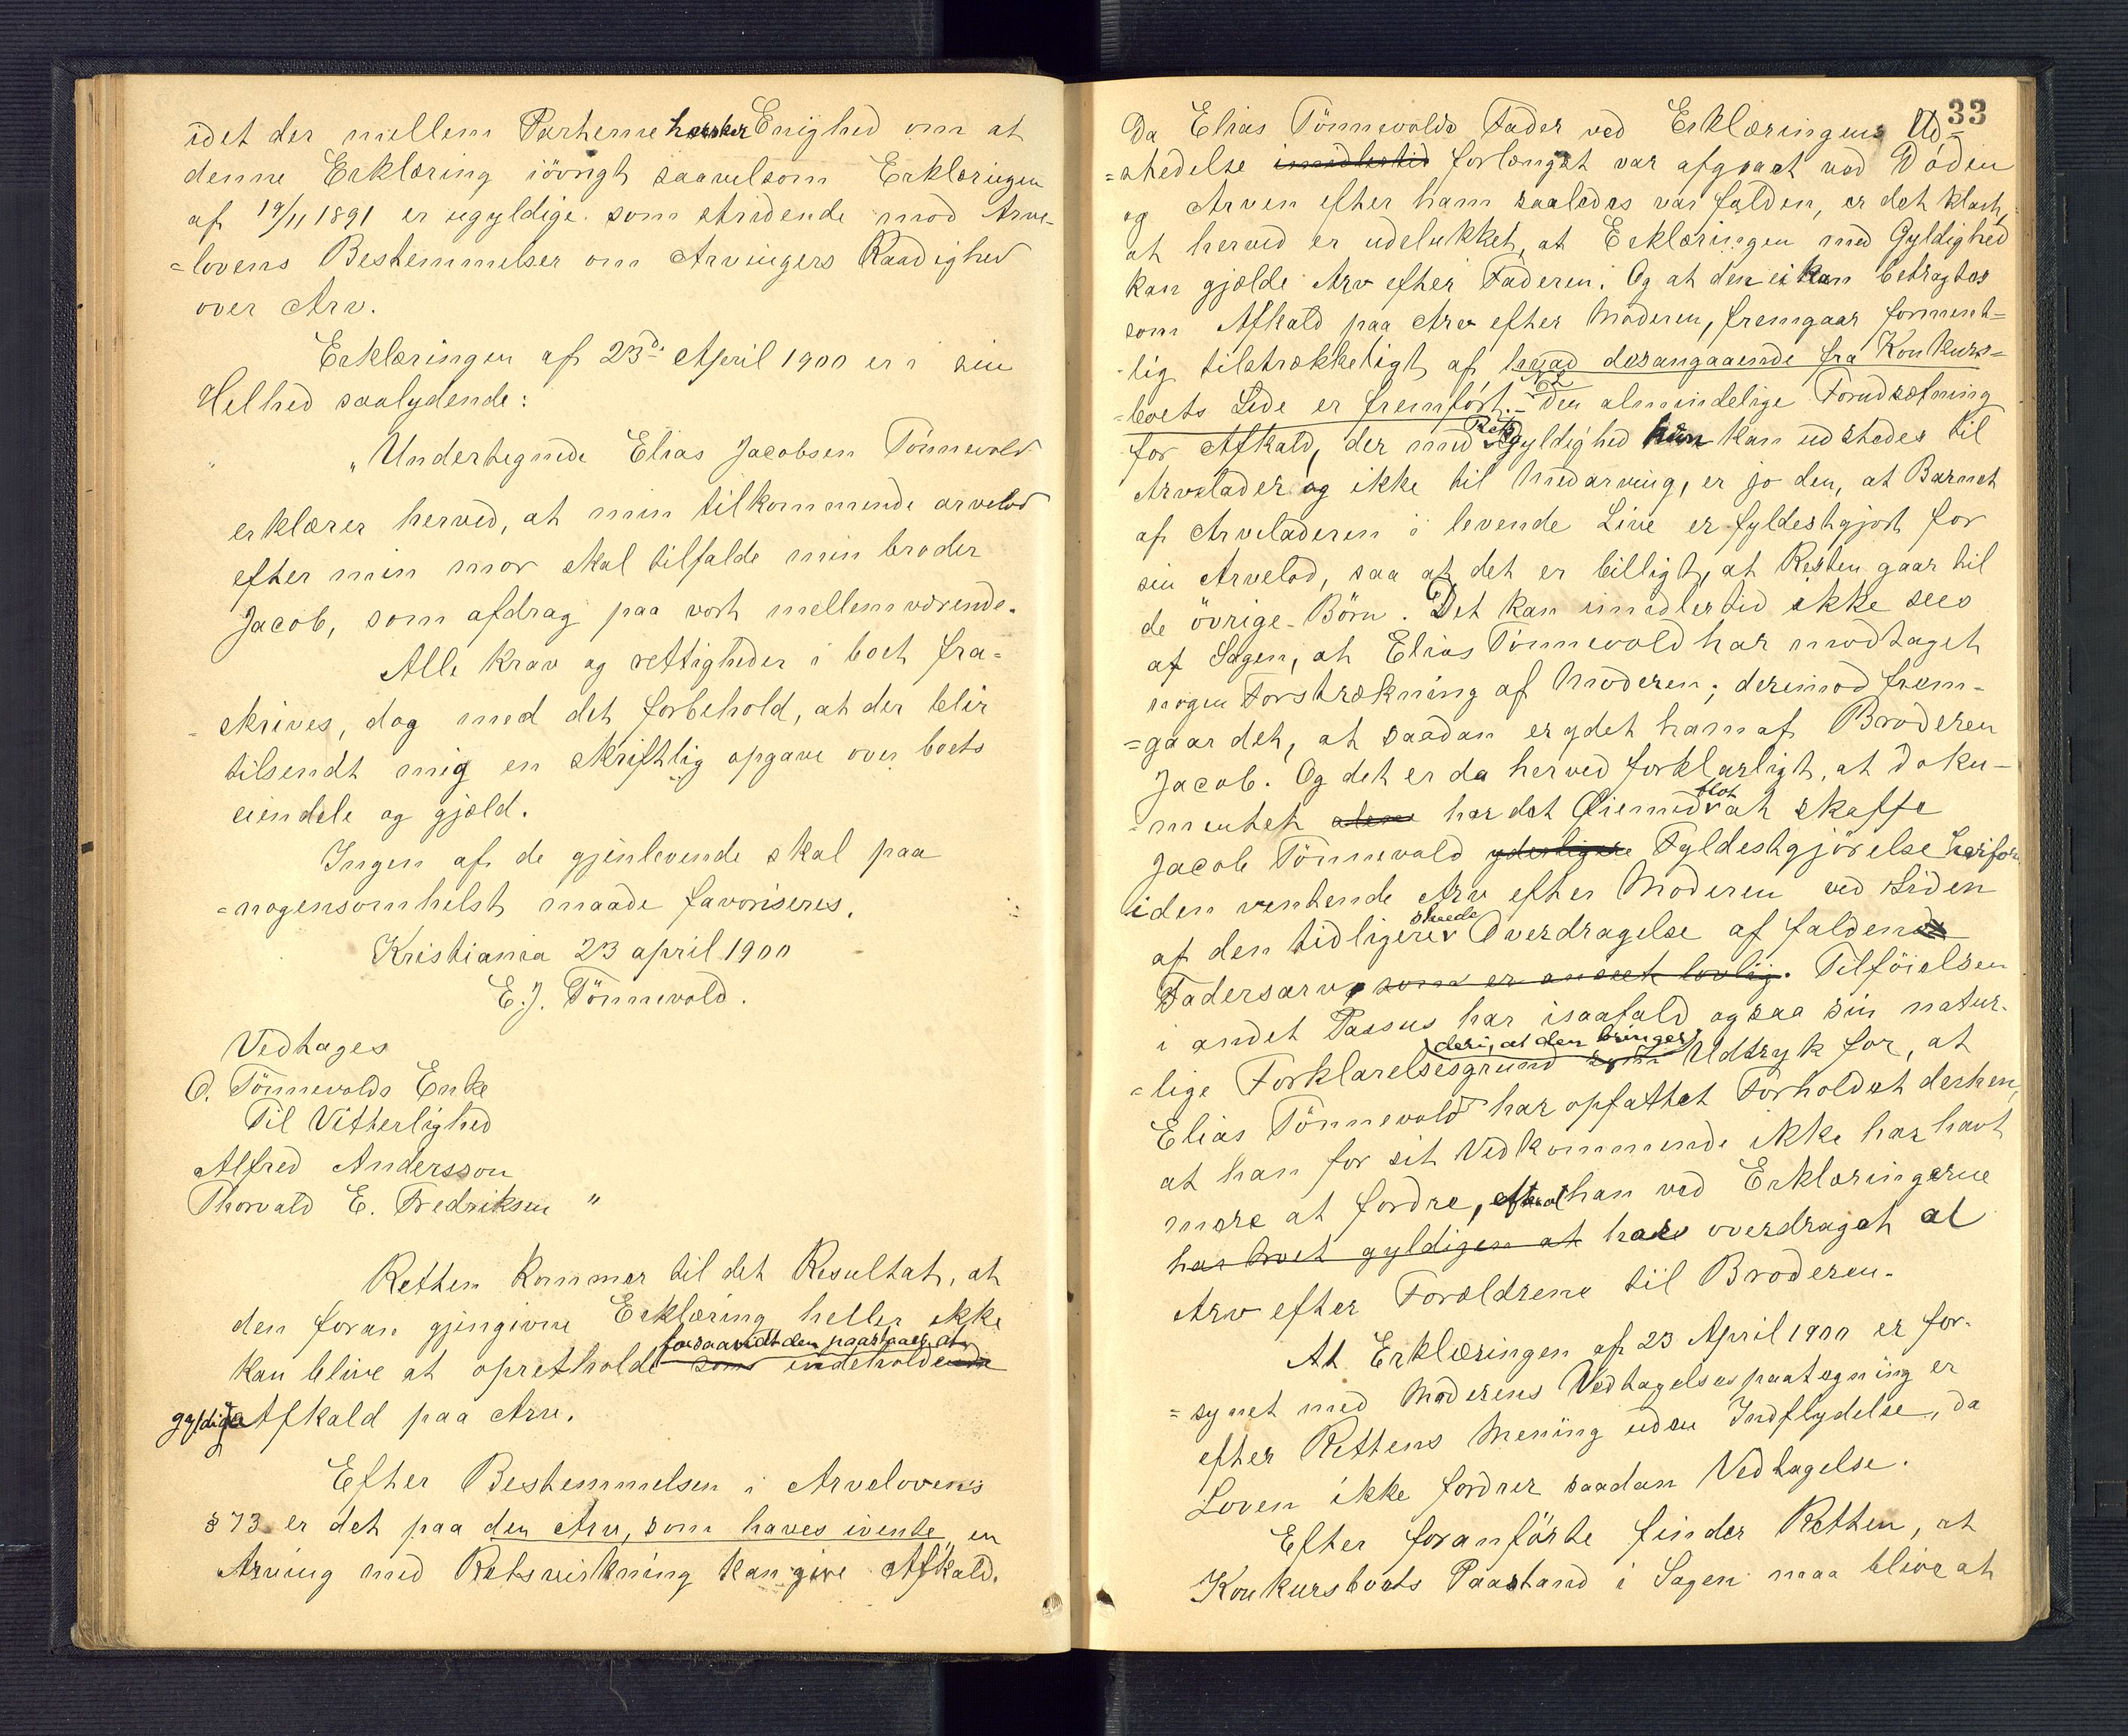 idet der mellem Parterne hersker Enighed om at
denne Erklæring iövrigt saavelsom Erklæringen
af 19/11 1891 er ugyldige som stridende mod Arve-
=lovens Bestemmelser om Arvingers Raadighed
over Arv.
Erklæringen af 23d. April 1900 er i sin
Helhed saalydende:
„Undertegnede Elias Jacobsen Tönnevold
erklærer herved, at min tilkommende arvelod
efter min mor skal tilfalde min broder
Jacob, som afdrag paa vort mellemværende.
Alle krav og rettigheder i boet fra=
=skrives, dog med det forbehold, at der blir
tilsendt mig en skriftlig opgave over boets
eiendele og gjæld.
Ingen af de gjenlevende skal paa
=nogensomhelst maade favoriseres.
Kristiania 23 april 1900
E.J. Tönnevold.
Vedtages
O. Tönnevolds Enke
Til Vitterlighed
Alfred Andersson
Thorvald E. Fredriksen "
Retten kommer til det Resultat, at
den foran gjengivne Erklæring heller ikke
forsaavidt den paastaaes at
kan blive at opretholde som indeholdende
gyldigt Afkald paa Arv.
Efter Bestemmelsen i Arvelovens
§ 73 er det paa den Arv, som haves ivente, en
Arving med Retsvirkning kan give Afkald.
33
Da Elias Tönnevolds Fader ved Erklæringens Ud=
=stedelse imidlertid forlængst var afgaaet ved Döden
og Arven efter ham saaledes var falden, er det klart,
at herved er udelukket, at Erklæringen med Gyldighed
kan gjælde Arv efter Faderen. Og at den ei kan betragtes
som Afkald paa Arv efter Moderen, fremgaar forment=
=lig tilstrækkeligt af hvad desangaaende fra Konkurs=
=boets Side er fremfört. Den almindelige Forudsætning
Rets
for Afkald, der med Gyldighed kun kan udstedes til
Arvelader og ikke til Medarving, er jo den, at Barnet
af Arveladeren i levende Live er fyldestgjort for
sin Arvelod, saa at det er billigt, at Resten gaar til
de övrige Börn. Det kan imidlertid ikke sees
af Sagen, at Elias Tönnevold har modtaget
nogen Forstrækning af Moderen; derimod frem-
=gaar det, at saadan er ydet ham af Broderen
Jacob. Og det er da herved forklarligt, at Doku-
blot
=mentet alene har det Øiemed at skaffe
Jacob Tönnevold yderligere Fyldestgjörelse herfor
iden ventende Arv efter Moderen ved Siden
skeede
af den tidligere Overdragelse af falden
Fadersarv, som er anseet lovlig. Tilföielsen
i andet Passus har isaafald ogsaa sin natur-
deri, at den bringer
=lige Forklarelsesgrund som Udtryk for, at
Elias Tönnevold har opfattet Forholdet derhen,
at han for sit Vedkommende ikke har havt
mere at fordre, efterat han ved Erklæringerne
har troet gyldigen at have overdraget al
Arv efter Forældrene til Broderen.
At Erklæringen af 23 April 1900 er for-
=synet med Moderens Vedtagelsespaategning er
efter Rettens Mening uden Indflydelse, da
Loven ikke fordrer saadan Vedtagelse.
Efter foranförte finder Retten, at
Konkursboets Paastand i Sagen maa blive at